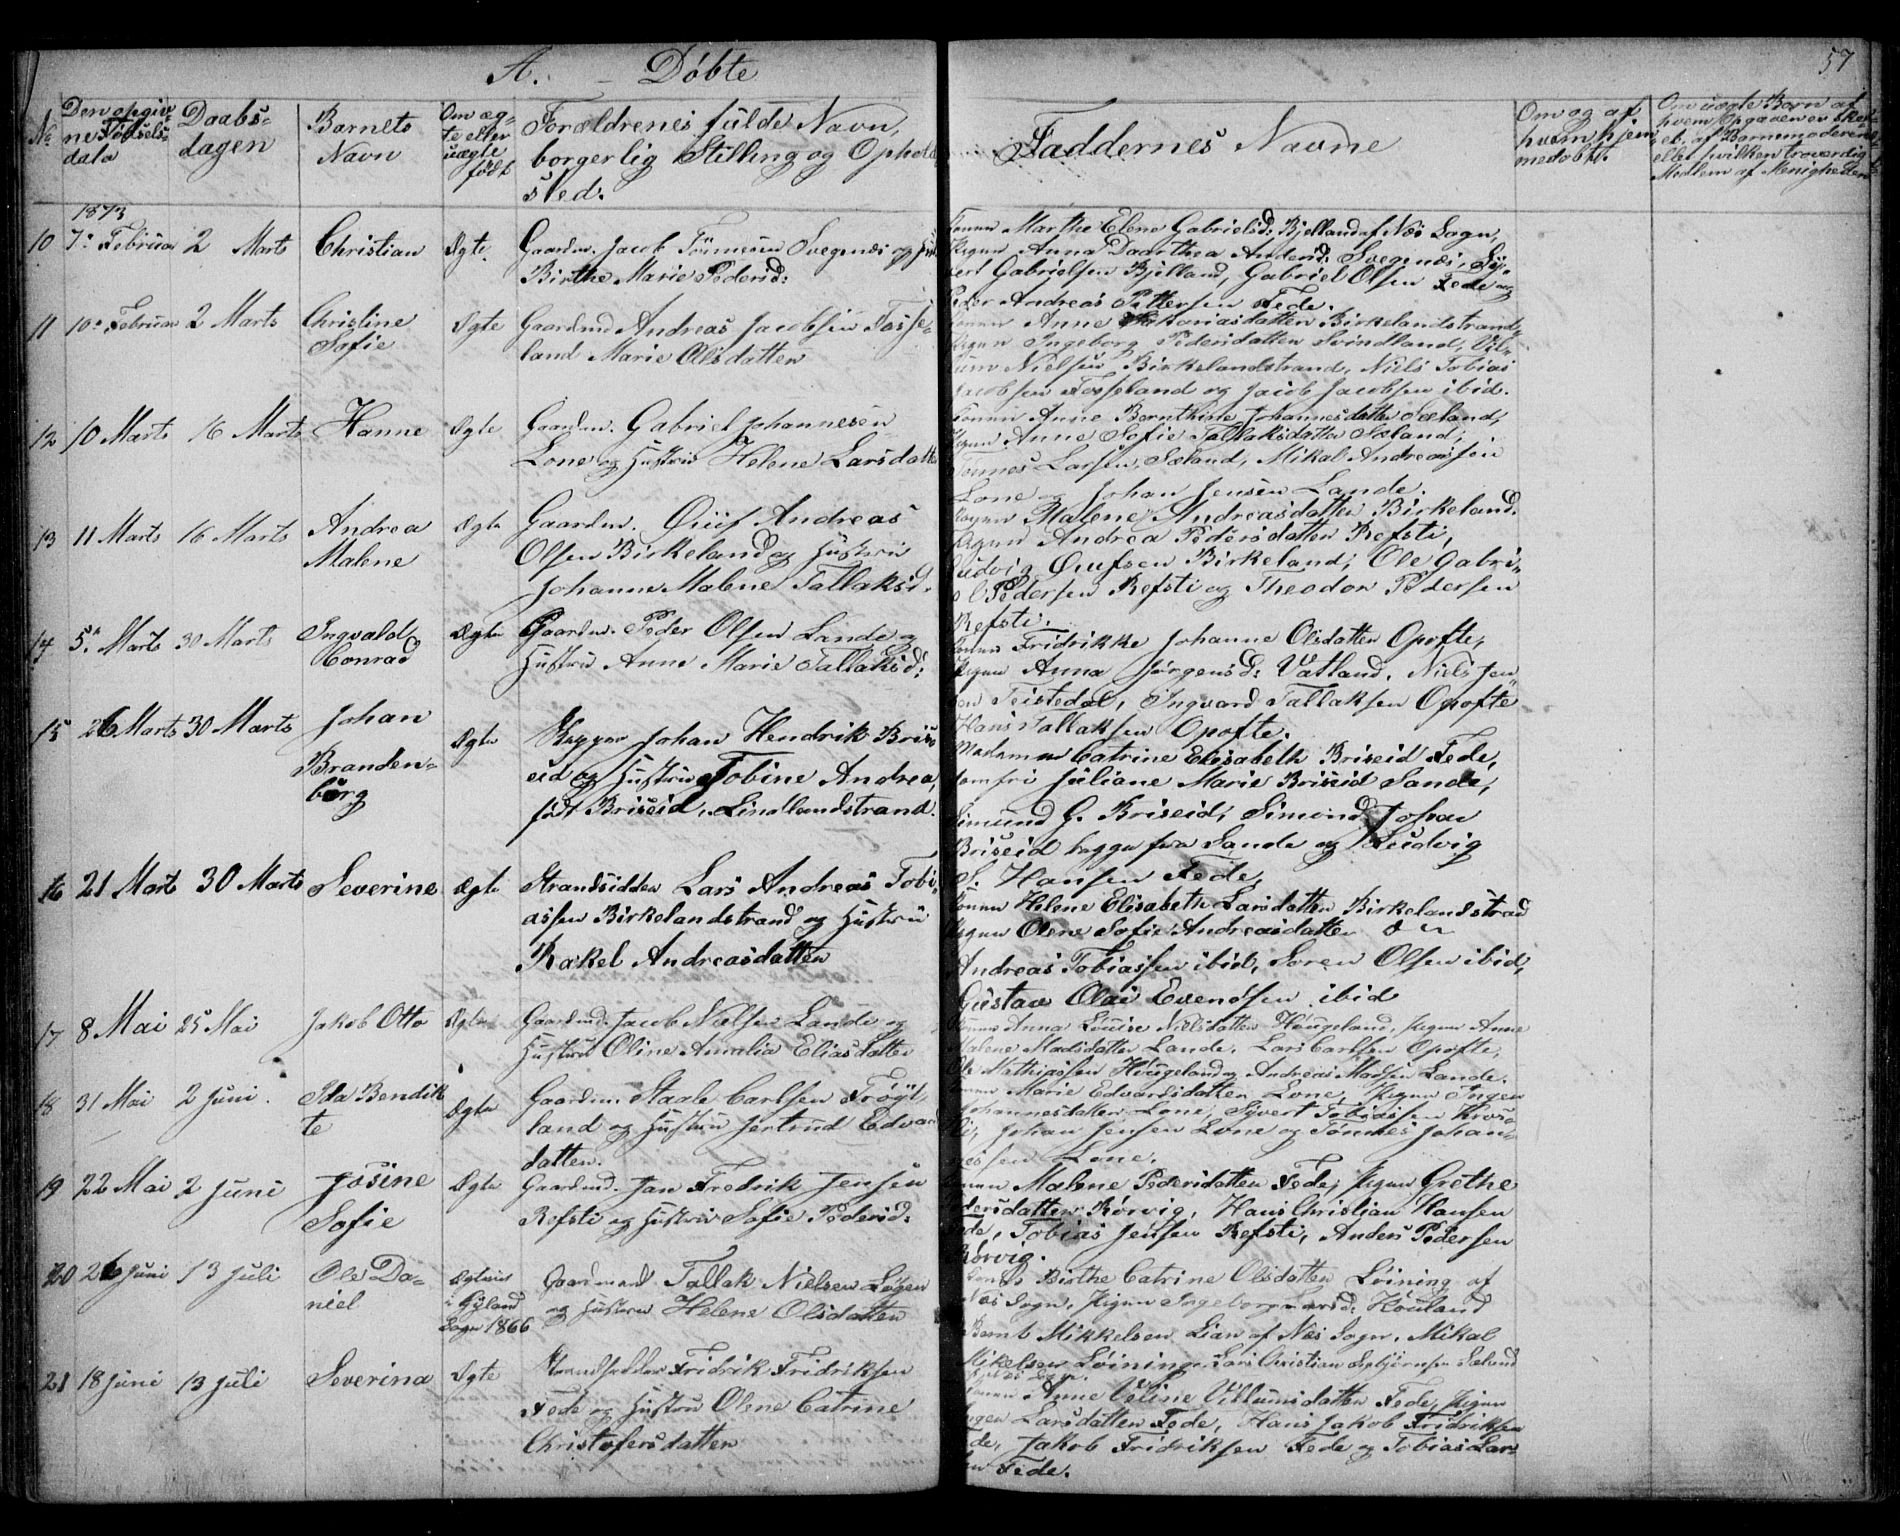 57
A. Døbte
No
Den opgiv-
ne Fødsels-
data
Daabs-
dagen
Barnets
Navn
Om æg-
te eller
uægte
født
Forældrenes fulde Navn,
borgerlig Stilling og Ophold
sted.
Faddernes Navne
Om og af
hvem hjem-
medøbt.
Om uægte Barn af
hvem Opgaven er ske-
et, af Barnemoderen
eller hvilken troværdig
Medlem af Menigheden
1873
10 7de Februar 2 Marts Christian Ægte
Gaardm. Jacob Tönnesen Svegenæs og
Birthe Marie Pedersd:
Marthe Elene Gabrielsd: Bjelland af Næs Sogn,
Anna Daarthea Andersd: Svegenæs, Sy-
vert Gabrielsen Bjelland, Gabriel Olsen Fede og
Peder Andreas Pettersen Fede.
11 10de Februar 2 Marts Christine
Sofie
Ægte
Gaardmd Andreas Jacobsen Fosse-
land Marie Olsdatter
Anne Birkelandstrand,
Ingeborg Pedersdatter Svindland, Vil-
lum Nielsen Birkelandstrand, Niels Tobias
Jacobsen Fosseland og Jacob Jacobsen ibid.
12 10 Marts 16 Marts Hanne Ægte
Gaardm. Gabriel Johannesen
Lone og Hustru Helene Larsdatter
Anne Bernthine Johannesdatter Sæland,
Anne Sofie Tallaksdatter Sæland,
Tönnes Larsen, Sæland, Mikal Andreassen
Lone og Johan Jensen Lande.
13 11 Marts 16 Marts Andrea
Malene
Ægte
Gaardm. Ouif Andreas
Olsen Birkeland og Hustru
Johanne Malene Tallaksd.
Malene Andreasdatter Birkeland.
Andrea Pedersdatter Refsti,
Ludvig Oufsen Birkeland, Ole Gabri-
el Pedersen Refsti og Theodor Pedersen
Refsti.
14 5te Marts 30 Marts Ingvald
Conrad
Ægte
Gaardm. Peder Olsen Lande og
Hustru Anne Marie Tallaksd:
Fridrikke Johanne Olsdatter Opofte,
Pigen Anna Jörgensd: Vatland, Niels Jen-
sen Feistedal, Ingvard Tallaksen Opofte
Hans Tallaksen Opofte.
15 26 Marts 30 Marts Johan
Branden-
borg
Ægte
Johan Hendrik Bris-
eid og Hustru Tobine Andrea,
født Briseid, Lindlandstrand.
Madamme Catrine Elisabeth Briseid Fede,
Jomfru Juliane Marie Briseid Sande,
Simund G. Briseid, Simond Johan
Briseid begge fra Sande og Ludvig
S. Hansen Fede.
16 21 Marts 30 Marts Severine Ægte
Strandsidder Lars Andreas Tobi-
assen Birkelandstrand og Hustru
Rakel Andreasdatter
Helene Elisabeth Larsdatter Birkelandstrad
Pigen Olene Sofie Andreasdatter
Andreas Tobiassen ibid, Soren Olsen ibid,
Gustav Olai Evendsen ibid
17 8 Mai 25 Mai Jakob Otto Ægte
Gaardmd. Jacob Nielsen Lande og
Hustru Oline Amalia Eliasdatter
Anna Louise Nielsdatter Haugeland, Pigen Anne
Malene Madsdatter Lande, Lars Carlsen Opofte,
Ole Mathiassen Haugeland og Andreas Madsen Lande.
18 31 Mai 2 Juni. Ida Bendik
te
Ægte
Gaardm. Staale Carlsen Fröyt-
land og Hustru Jertrud Edvar
datter.
Marie Edvardsdatter Lone, Pigen Inger
Johannesdatter Lone, Syvert Tobiassen
Johan Jensen Lone og Tönnes Johan-
nessen Lone.
19 22 Mai 2 Juni Josine
Sofie
Ægte
Gaardmd. Jan Fredrik Jensen
Refsti og Hustru Sofie Pedersd:
Malene Pedersdatter Fede, Pigen Grethe
Pedersdatter Rörvig, Hans Christian Hansen
Fede, Tobias Jensen Refsti, Anders Pedersen
Rörvig.
20 26 Juni 13 Juli Ole Da-
niel
Gyland
Sogn 1866
Gaardmand Tallak Nielsen Lögen
og Hustru Helene Olsdatter
Birthe Catrine Olsdatter Löining af
Næs Sogn, Pigen Ingeborg
Bernt Mikkelsen Lian af Næs Sogn, Mikal
Mikelsen Löining, Lars Christian Sæland
21 18 Juni 13 Juli Severina Ægte
Strandsidder Fridrik Fridriksen
Fede og Hustru Olene Catrine
Christofersdatter
Anne Veline Villumsdatter Fede, Pigen
Inger Larsdatter Fede, Hans Jakob Fridriksen
Fede, Jakob Fridriksen Fede og Tobias Lar-
sen Fede.